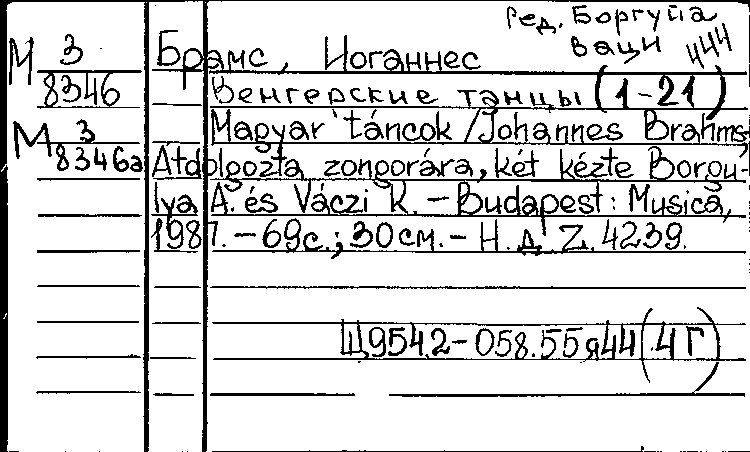 Ред. Боргуйа
ваци 444
М 3 Брамс, Иоганнес
8346 Венгерские танцы (1-21)
М 3 Magyar táncok / Johannes Brahms;
8346а Átdolgozta zongorára, két kézte Borgu-
lya A. és Váczi K. – Budapest: Musica,
1987. – 69с.; 30 см. – Н. д. Z. 4239.
Щ954.2-058.55я44 (4Г)